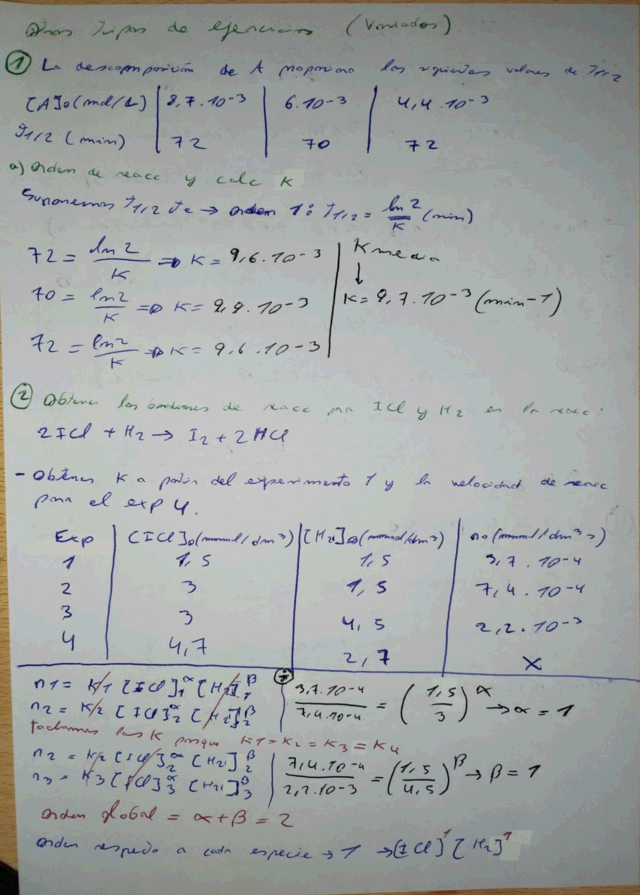 Otros tipos de ejercicios (Variados)
① La descomposición de A proporciona los siguientes valores de T1/2
[A]o (mol/L) | 8,7·10-3 | 6·10-3 | 4,4·10-3
T1/2 (min) | 72 | 70 | 72
a) Orden de reacc y calc K
Suponemos T1/2 cte → orden 1: T1/2 = ln2/K (min)
72 = ln2/K => K = 9,6·10-3 | K media
↓
70 = ln2/K => K = 9,9·10-3 | K = 9,7·10-3 (min-1)
72 = ln2/K => K = 9,6·10-3
② Obtener los órdenes de reacc para ICl y H2 en la reacc:
2ICl + H2 → I2 + 2HCl
- Obtener K a partir del experimento 1 y la velocidad de reacc
para el exp 4.
Exp | [ICl]o (mmol/dm3) | [H2]o (mmol/dm3) | no (mmol/dm3 s)
1 | 1,5 | 1,5 | 3,7·10-4
2 | 3 | 1,5 | 7,4·10-4
3 | 3 | 4,5 | 2,2·10-3
4 | 4,7 | 2,7 | X
n1 = K1 [ICl]1α [H2]1β | 3,7·10-4 / 7,4·10-4 = (1,5/3)α → α = 1
n2 = K2 [ICl]2α [H2]2β
tachamos las K porque K1 = K2 = K3 = K4
n2 = K2 [ICl]2α [H2]2β | 7,4·10-4 / 2,2·10-3 = (1,5/4,5)β → β = 1
n3 = K3 [ICl]3α [H2]3β
Orden global = α + β = 2
Orden respecto a cada especie → 1 → [ICl]1 [H2]1